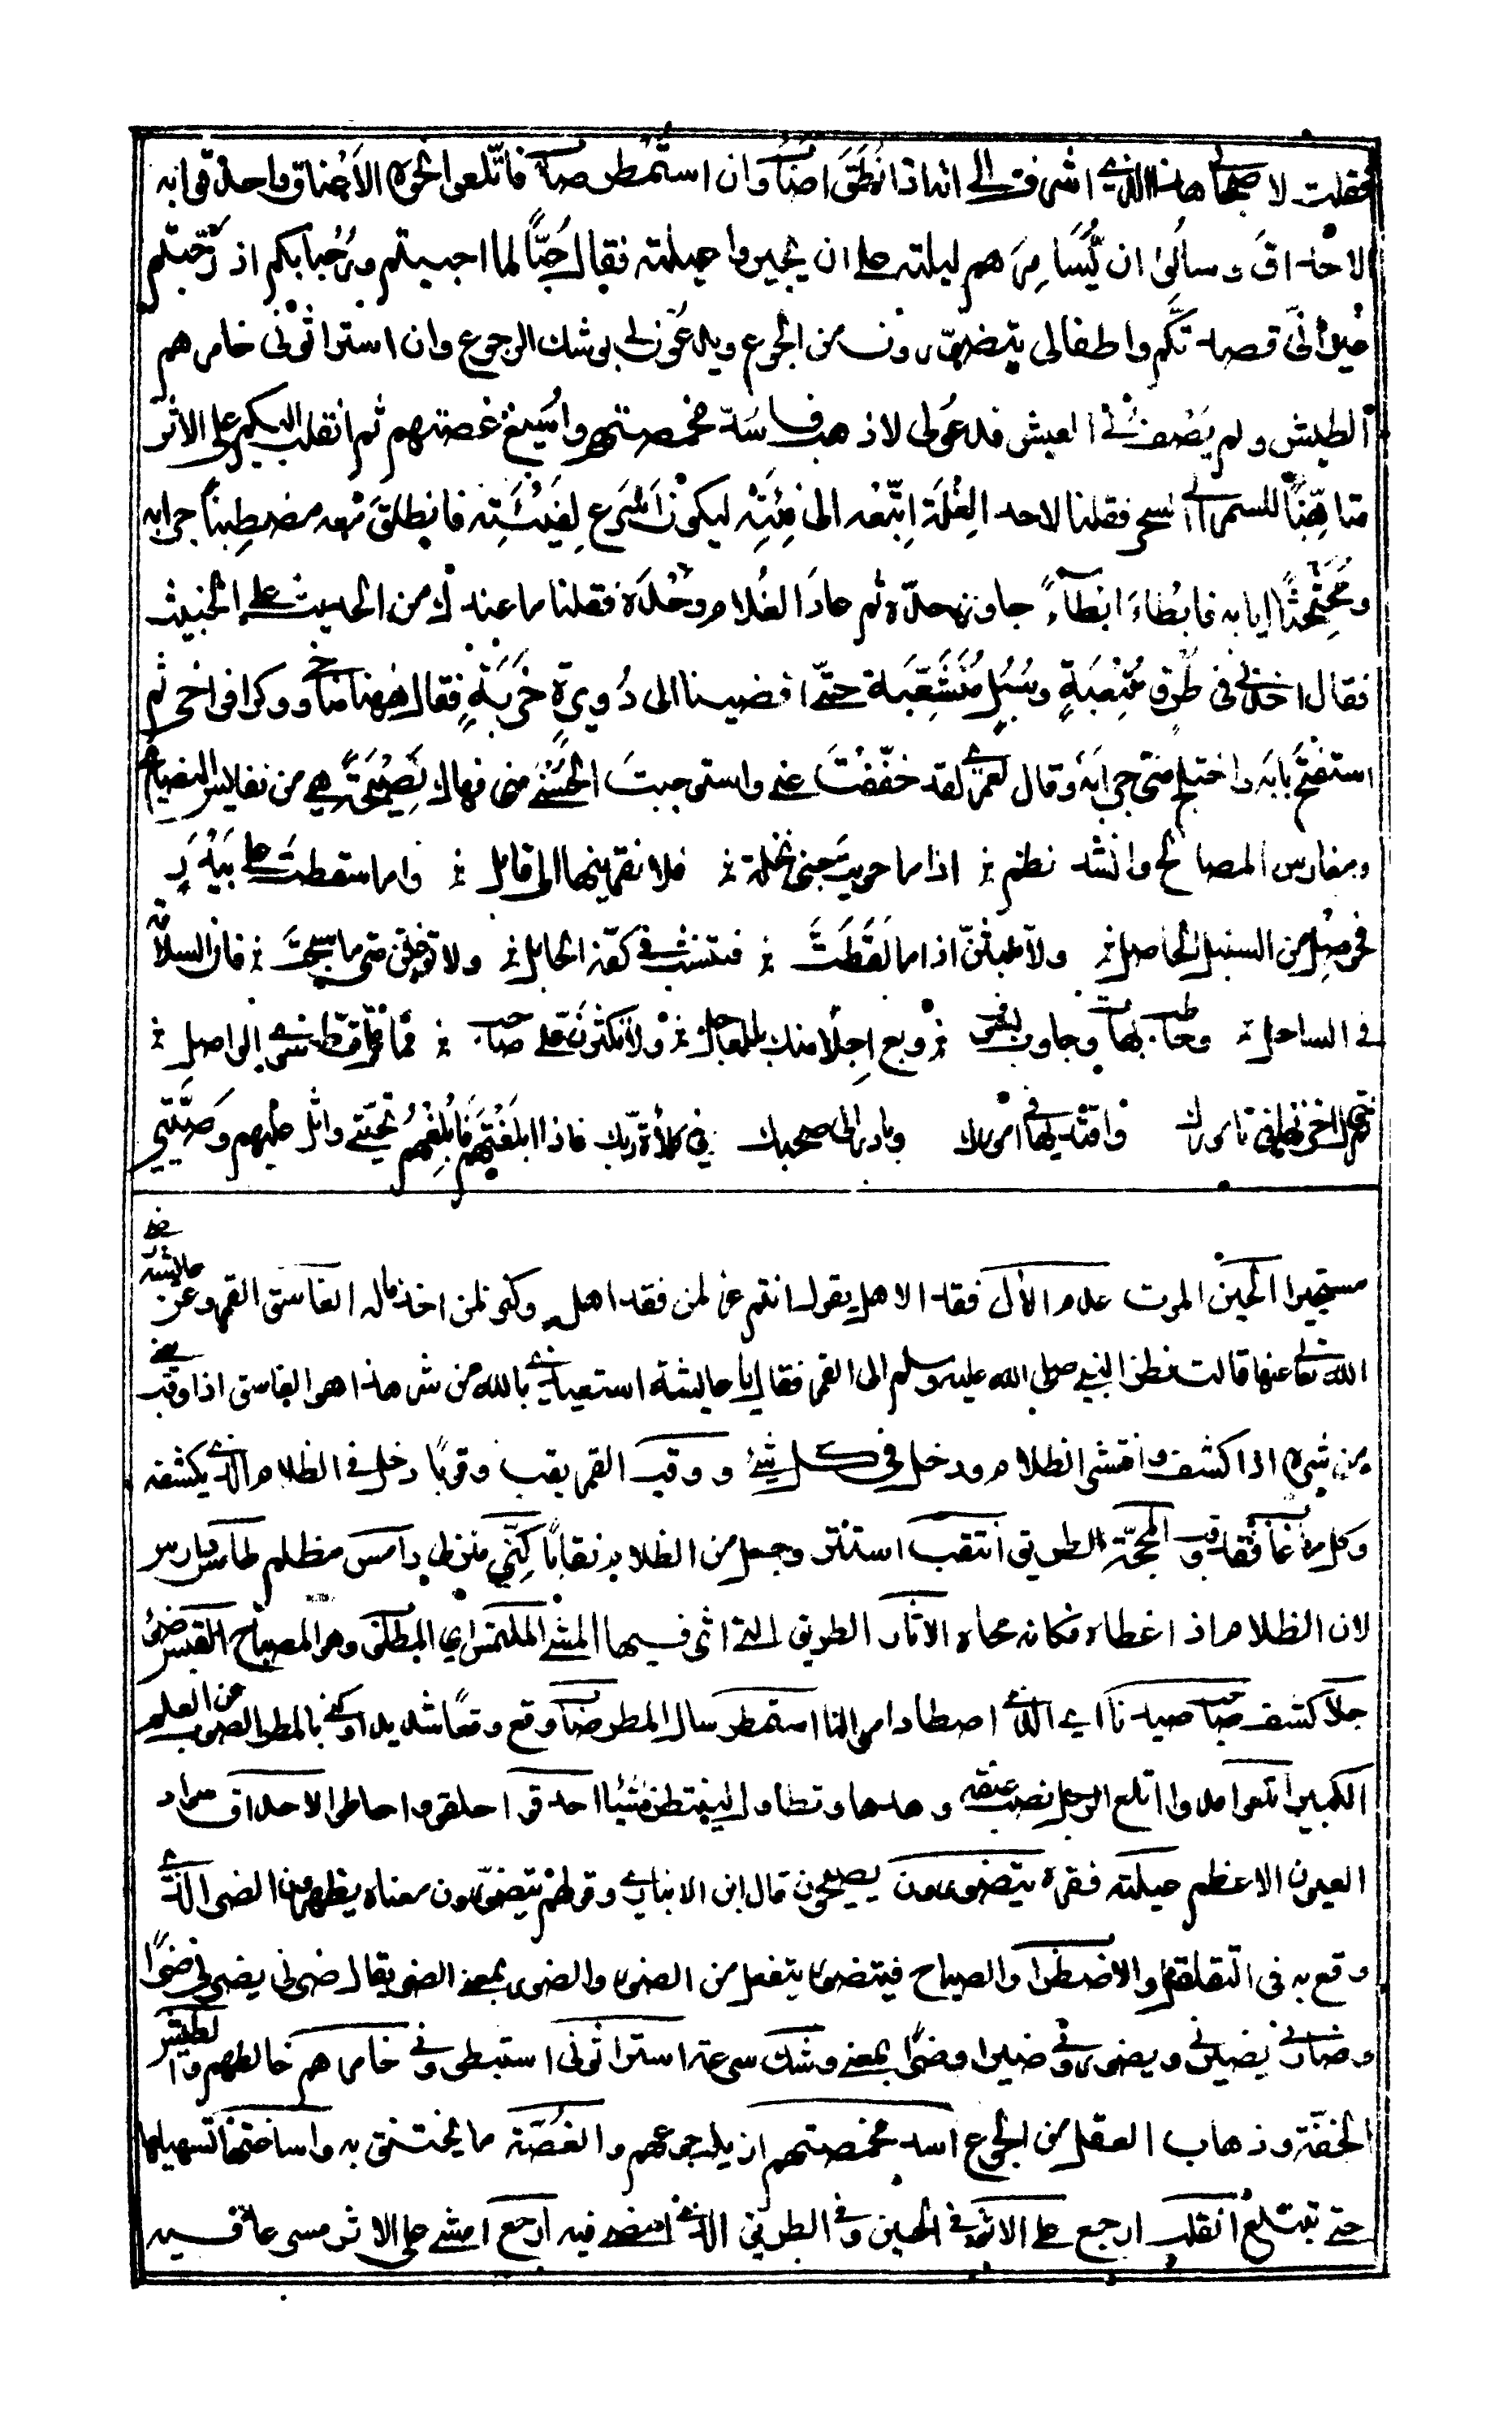 فقلت لاصحابي هذا الذي اشرت الى انه اذا نطق اصاب وان استمطر صاب فاتلعوا نحوه الاعناق واحدقوا به
الاحداق وسالوه ان يسامرهم ليلته على ان يجبروا عيلته فقال حبا لما احببتم ورحبا بكم اذ رحبتم
غير اني قصدتكم واطفالي يتضورون من الجوع ويدعون لي بوشك الرجوع وان استراثوني خامرهم
الطيش ولم يصف لهم العيش فدعوني لاذهب فاسد مخمصتهم واسيغ غصتهم ثم انقلب اليكم على الاثر
متاهبا للسمر الى السحر فقلنا لاحد الغلمة اتبعه الى فئته ليكون اسرع لفيئته فانطلق معه مضطبنا جرابه
ومحثحثا ايابه فابطاء ابطاء جاوز حده ثم عاد الغلام وحده فقلنا ما عندك من الحديث على الخبيث
فقال اخذ بي في طرق متعبة وسبل متشعبة حتى افضينا الى دويرة خربة فقال ههنا مناخي ووكر افراخي ثم
استفتح بابه واختلج مني جرابه وقال لعمري لقد خففت عني واستوجبت الحسنى مني فهاك نصيحة هي من نفايس النصايح
ومغارس المصالح وانشد نظم اذا ما حويت جنى نخلة فلا تقربنها الى قابل واما سقطت على بيدر
فحوصل من السنبل الحاصل ولا تلبثن اذا ما لقطت فتنشب في كفة الحابل ولا توغلن متى ما سبحت فان السلامة
في الساحل وخاطب بهات وجاوب بسوف وبع اجلا منك بالعاجل ولا تكثرن على صاحب فما مل قط سوى الواصل
ثم قال اخزنها في تامورك واقتد بها في امورك وبادر الى صحبك في كلاءة ربك فاذا ابلغتهم فابلغهم تحيتي واتل عليهم وصيتي
مستجيرا الحين الموت عدم الآل فقد الاهل يقول انتم عز لمن فقد اهله وكنز لمن اخذ ماله الغاسق القمر وعن عايشة رضي
الله تعالى عنها قالت نظر النبي صلى الله عليه وسلم الى القمر فقال يا عايشة استعيذي بالله من شر هذا هو الغاسق اذا وقب يعني
من شره اذا كشف وافتشى الظلام ودخل في كل شيء ووقب القمر يقب وقوبا دخل في الظلام الذي يكشفه
وكل ما غاب فقد وقب المحجة الطريق انتقب استتر وجعل من الظلام نقابا كني منزلي دامس مظلم طامس دارس
لان الظلام اذ اغطاه فكانه محاه الاثار الطريق التي اثر فيها المشي الملتمس اي المطلوب وهو المصباح القبس ضوء
جلا كشف صاب صيدنا اي الذي اصطاد اموالنا استمطر سال المطر صاب وقع وقعا شديدا وكني بالمطر الصوب عن العلم
الكبير اتلعوا مدوا اتلع الرجل نصب عنقه ومدها وتطاول لينتظر شيئا احدقوا حلقوا واحاطوا الاحداق سواد
العيون الاعظم عيلته فقره يتضورون يصيحون قال ابن الانباري وقولهم يتضورون معناه يظهرون الضر الذي
وقع به في التقلقل والاضطراب والصياح فيتضور يتفعل من الضور والضور بمعنى الضر يقال ضرني يضرني ضرا
وضارني يضيرني ويضورني ضيرا وضرا بمعنى وشك سرعة استراثوني استبطوني خامرهم خالطهم والطيش
الخفة وذهاب العقل من الجوع اسد مخمصتهم ازيل جوعهم والغصة ما يختنق به واساغتها تسهيلها
حتى تبتلع انقلب ارجع على الاثر في الحين وفي الطريق الذي امضي فيه ارجع امشي على الاثر